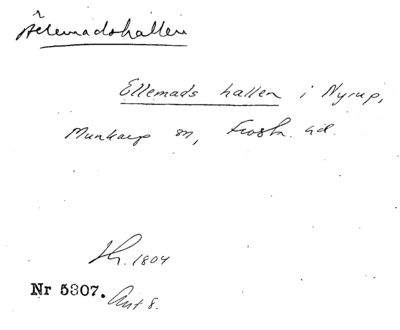 Ällemadshallen
Ellemads hallen i Nyrup,
Munkarp sn, Frosta hd.
Hr. 1804
Nr 5307. Ant 8.